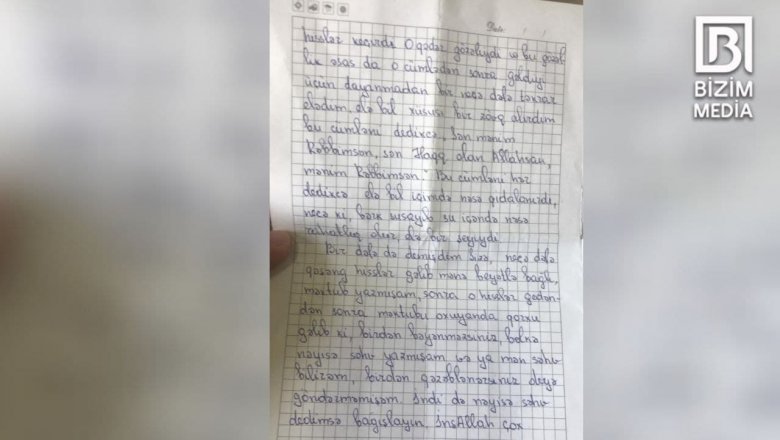 Date: / /
hisslər keçirdi. O qədər gözəliydi və bu gözəl
lik əsas da o cümlədən sonra gəldiyi
üçün dayanmadan bir neçə dəfə təkrar
elədim, elə bil xüsusi bir zövq alırdım
bu cümləni dedikcə, Sən mənim
Rəbbimsən, sən Haqq olan Allahsan,
mənim Rəbbimsən." Bu cümləni hər
dedikcə elə bil içimdə nəsə qidalanırdı,
necə ki, bərk susayıb su içəndə nəsə
rahatlıq olur, elə bir şeyiydi.
Bir dəfə də demişdim Sizə, neçə dəfə
qəşəng hisslər gəlib mənə beyətlə bağlı,
məktub yazmışam, sonra o hisslər gedən-
dən sonra məktubu oxuyanda qorxu
gəlib ki, birdən bəyənməzsiniz, bəlkə
nəyisə səhv yazmışam və ya mən səhv
bilirəm, birdən qəzəblənərsiniz deyə
göndərməmişəm. İndi də nəyisə səhv
dedimsə bağışlayın. İnşAllah çox
BİZİM
MEDIA